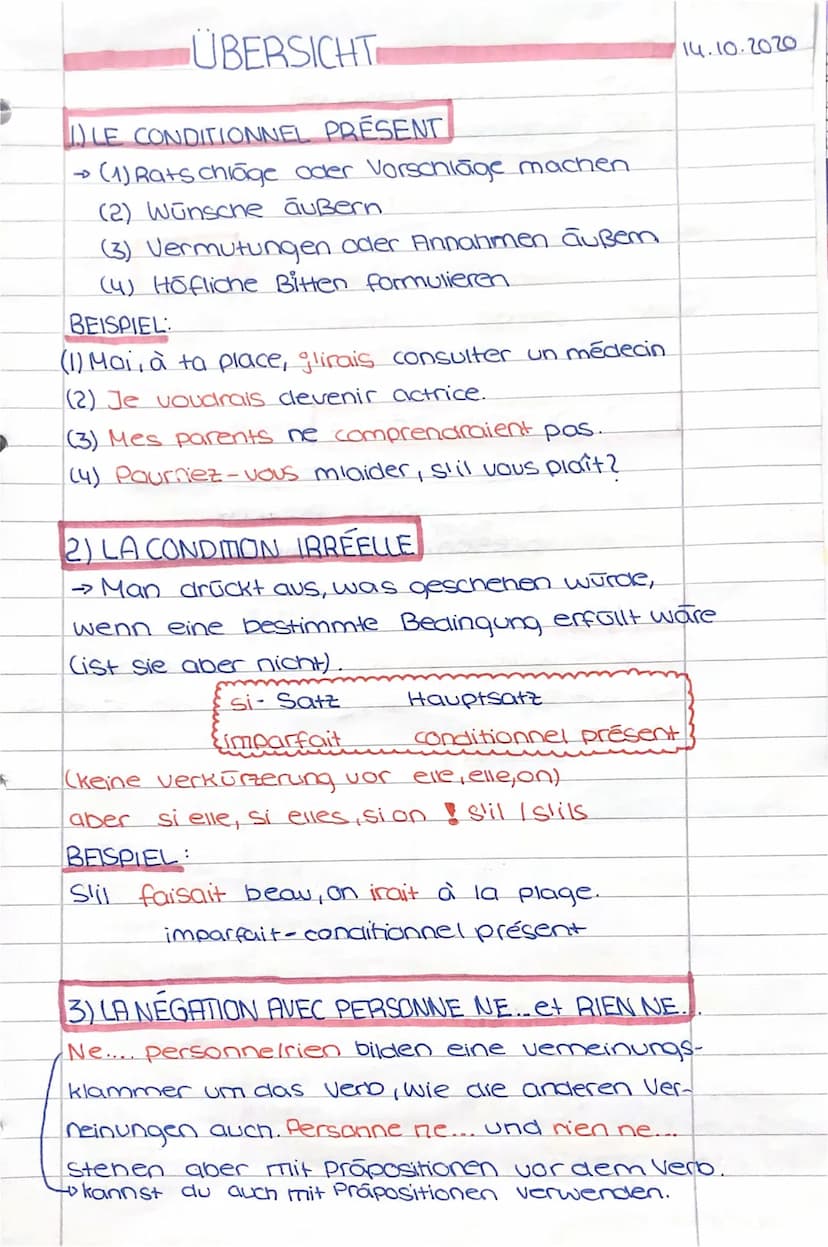 ÜBERSICHT 14.10.2020
1.) LE CONDITIONNEL PRÉSENT
→ (1) Ratschläge oder Vorschläge machen
(2) Wünsche äußern
(3) Vermutungen oder Annahmen äußern
(4) Höfliche Bitten formulieren
BEISPIEL:
(1) Moi, à ta place, j'irais consulter un médecin
(2) Je voudrais devenir actrice.
(3) Mes parents ne comprendraient pas.
(4) Pourriez-vous m'aider, s'il vous plaît?
2) LA CONDITION IRRÉELLE
→ Man drückt aus, was geschehen würde,
wenn eine bestimmte Bedingung erfüllt wäre
(ist sie aber nicht).
si- Satz Hauptsatz
imparfait conditionnel présent
(keine verkürzerung vor elle, elle, on)
aber si elle, si elles, si on ! s'il / s'ils
BEISPIEL:
S'il faisait beau, on irait à la plage.
imparfait - conditionnel présent
3) LA NÉGATION AVEC PERSONNE NE... et RIEN NE...
Ne.... personne/rien bilden eine verneinungs-
klammer um das Verb, wie die anderen Ver-
neinungen auch. Personne ne... und rien ne...
stehen aber mit Präpositionen vor dem Verb.
→ kannst du auch mit Präpositionen verwenden.